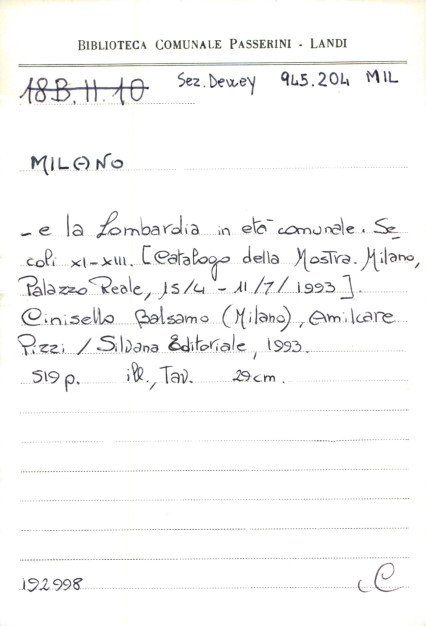 BIBLIOTECA COMUNALE PASSERINI - LANDI
18B.II.10 Sez. Dewey 945.204 MIL
MILANO
- e la Lombardia in età comunale. Se-
coli XI-XIII. [Catalogo della Mostra. Milano,
Palazzo Reale, 15/4 - 11/7/1993].
Cinisello Balsamo (Milano), Amilcare
Pizzi / Silvana Editoriale, 1993.
519 p. ill., Tav. 29 cm.
192998
C